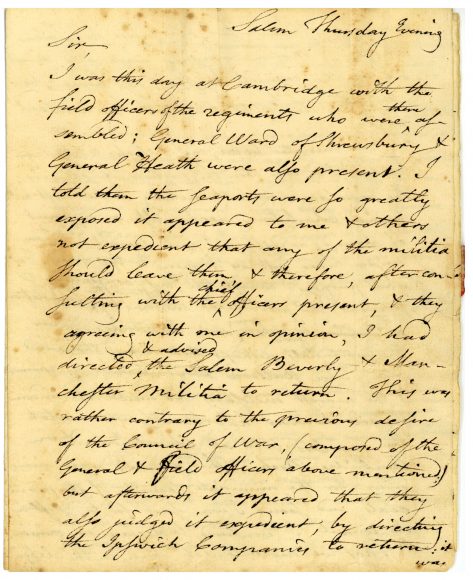 Salem Thursday Evening
Sir,
I was this day at Cambridge with the
field officers of the regiments who were there as-
sembled; General Ward of Shrewsbury &
General Heath were also present. I
told them the seaports were so greatly
exposed it appeared to me & others
not expedient that any of the militia
should leave them, & therefore, after con-
sulting with the chief officers present, & they
agreeing with one in opinion, I had
directed & advised the Salem Beverly & Man-
chester Militia to return. This was
rather contrary to the previous desire
of the Council of War, (composed of the
General & field officers above mentioned)
but afterwards it appeared that they
also judged it expedient, by directing
the Ipswich Companies to return; it
was